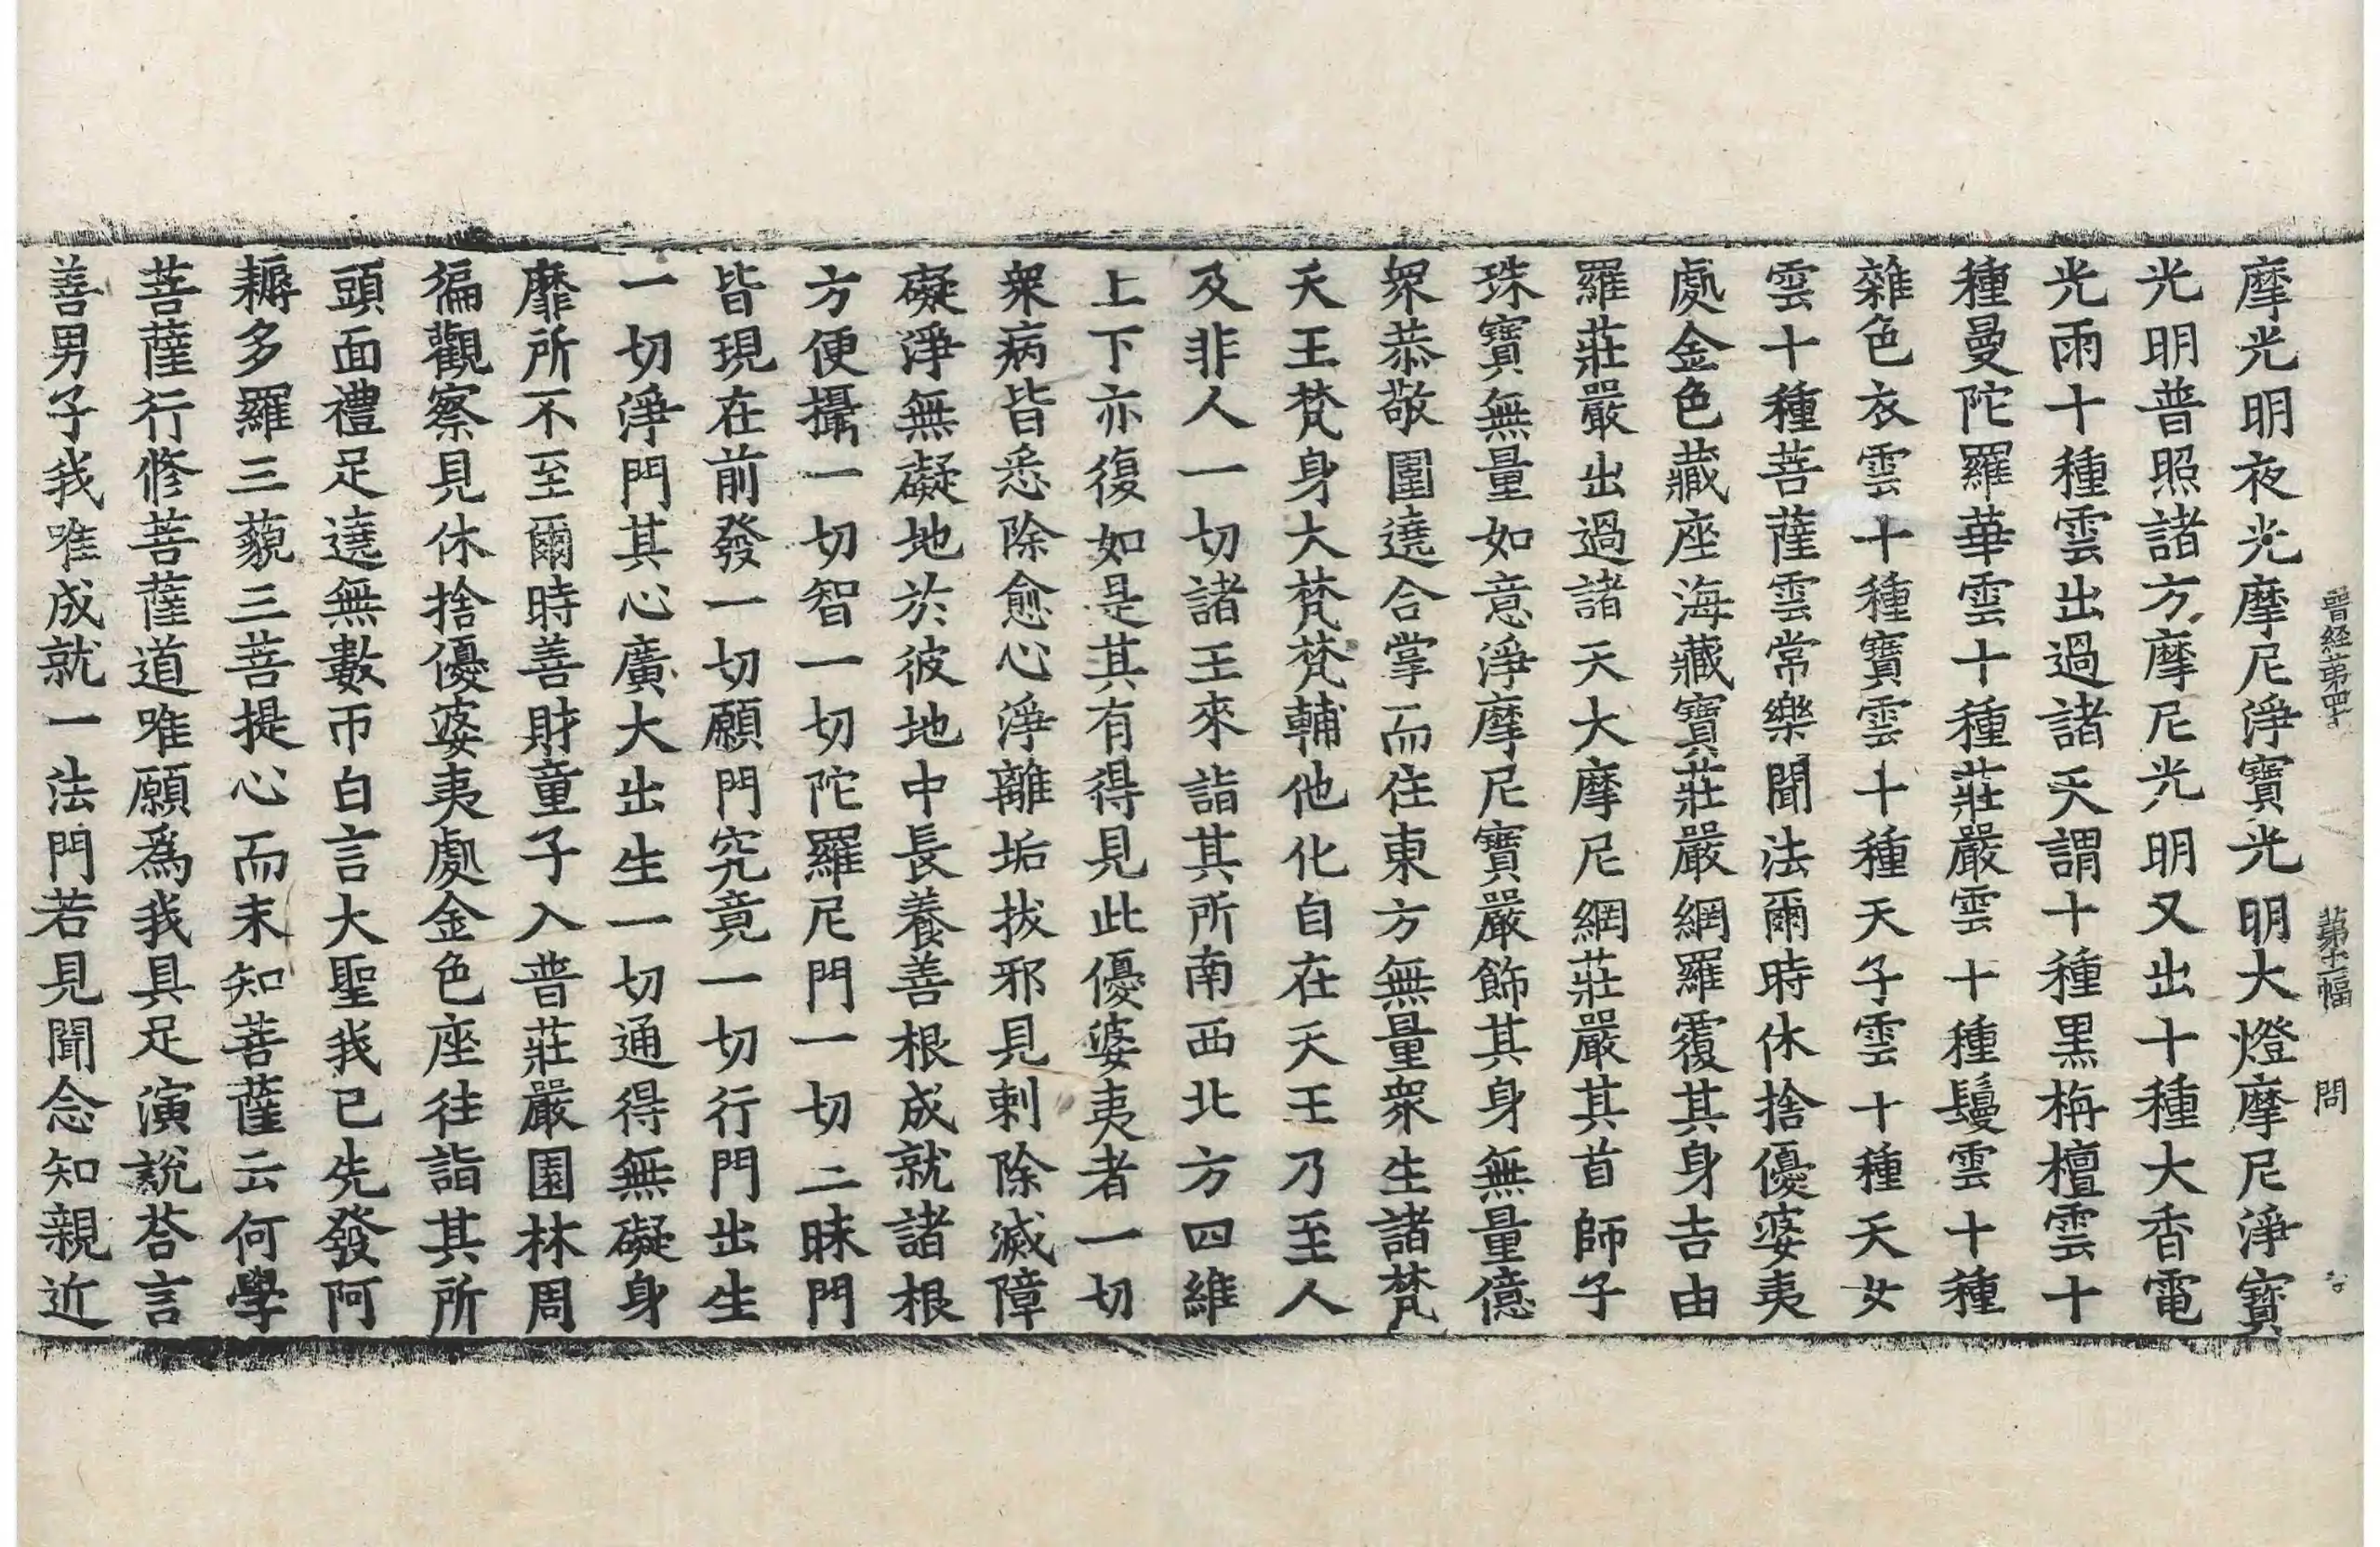 晉經第四十 第十二幅 問
摩光明夜光摩尼淨寶光明大燈摩尼淨寶
光明普照諸方摩尼光明又出十種大香電
光雨十種雲出過諸天謂十種黒栴檀雲十
種曼陀羅華雲十種莊嚴雲十種鬘雲十種
雜色衣雲十種寶雲十種天子雲十種天女
雲十種菩薩雲常樂聞法爾時休捨優婆夷
處金色藏座海藏寶莊嚴網羅覆其身吉由
羅莊嚴出過諸天大摩尼網莊嚴其首師子
珠寶無量如意淨摩尼寶嚴飾其身無量億
衆恭敬圍遶合掌而住東方無量衆生諸梵
天王梵身大梵梵輔他化自在天王乃至人
及非人一切諸王來詣其所南西北方四維
上下亦復如是其有得見此優婆夷者一切
衆病皆悉除愈心淨離垢拔邪見刺除滅障
礙淨無礙地於彼地中長養善根成就諸根
方便攝一切智一切陀羅尼門一切三昧門
皆現在前發一切願門究竟一切行門出生
一切淨門其心廣大出生一切通得無礙身
靡所不至爾時善財童子入普莊嚴園林周
徧觀察見休捨優婆夷處金色座往詣其所
頭面禮足遶無數帀白言大聖我已先發阿
耨多羅三藐三菩提心而未知菩薩云何學
菩薩行修菩薩道唯願爲我具足演說荅言
善男子我唯成就一法門若見聞念知親近